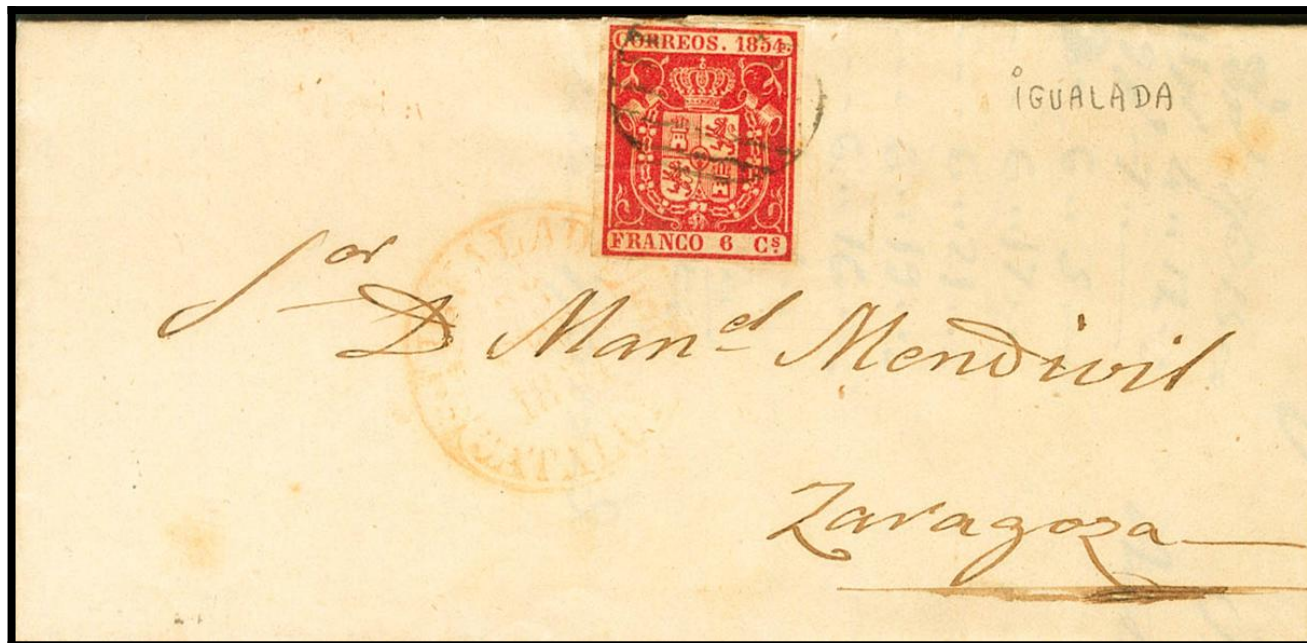 CORREOS. 1854.
FRANCO 6 Cs.
iGUALADA
Sor
D Manel Mendivil
Zaragoza